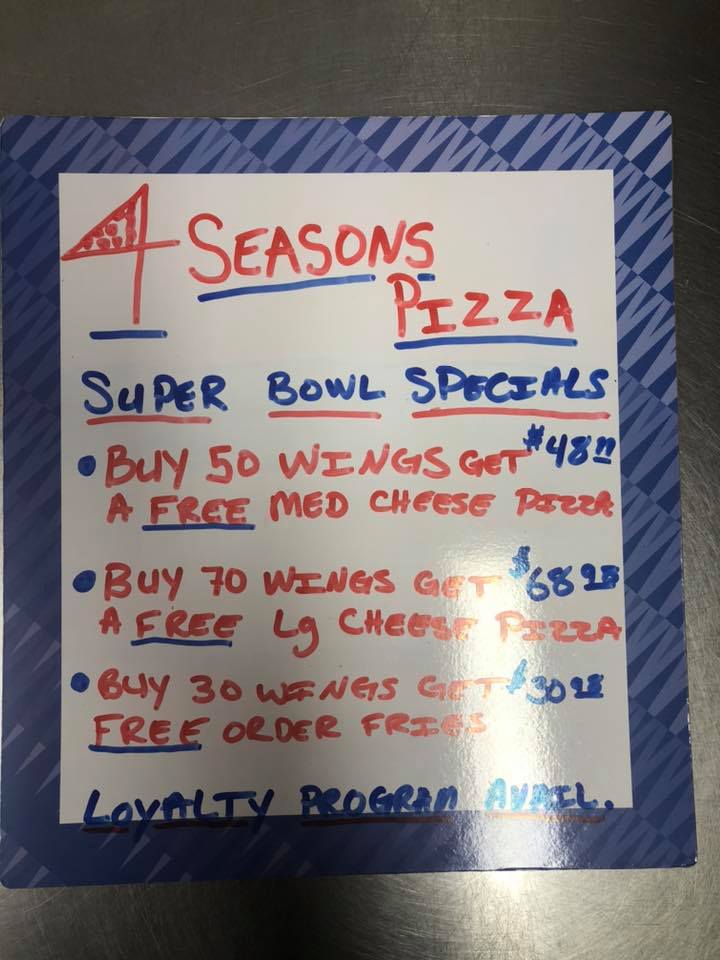 4 SEASONS
PIZZA
SUPER BOWL SPECIALS
• BUY 50 WINGS GET $48
A FREE MED CHEESE PIZZA
• BUY 70 WINGS GET $68
A FREE Lg CHEESE PIZZA
• BUY 30 WINGS GET $30
FREE ORDER FRIES
LOYALTY PROGRAM AVAIL.